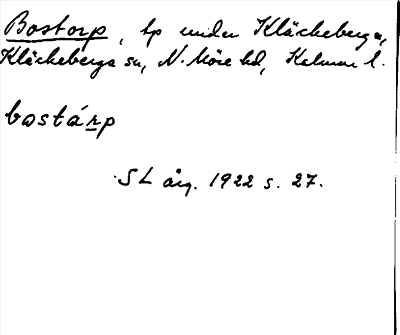 Bostorp, lp under Kläckeberga,
Kläckeberga sn, N. Möre hd, Kalmar l.
bostárp
SL årg. 1922 s. 27.